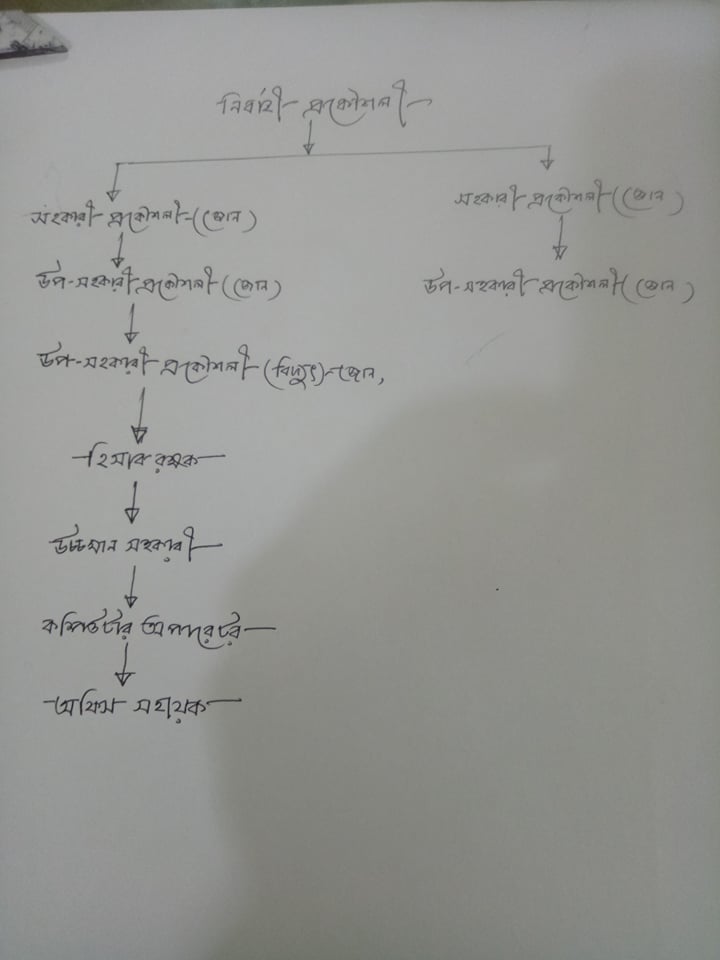 নির্বাহী প্রকৌশলী
সহকারী প্রকৌশলী (জোন)
সহকারী প্রকৌশলী (জোন)
উপ-সহকারী প্রকৌশলী (জোন)
উপ-সহকারী প্রকৌশলী (জোন)
উপ-সহকারী প্রকৌশলী (বিদ্যুৎ)-জোন,
হিসাব রক্ষক
উচ্চমান সহকারী
কম্পিউটার অপারেটর
অফিস সহায়ক